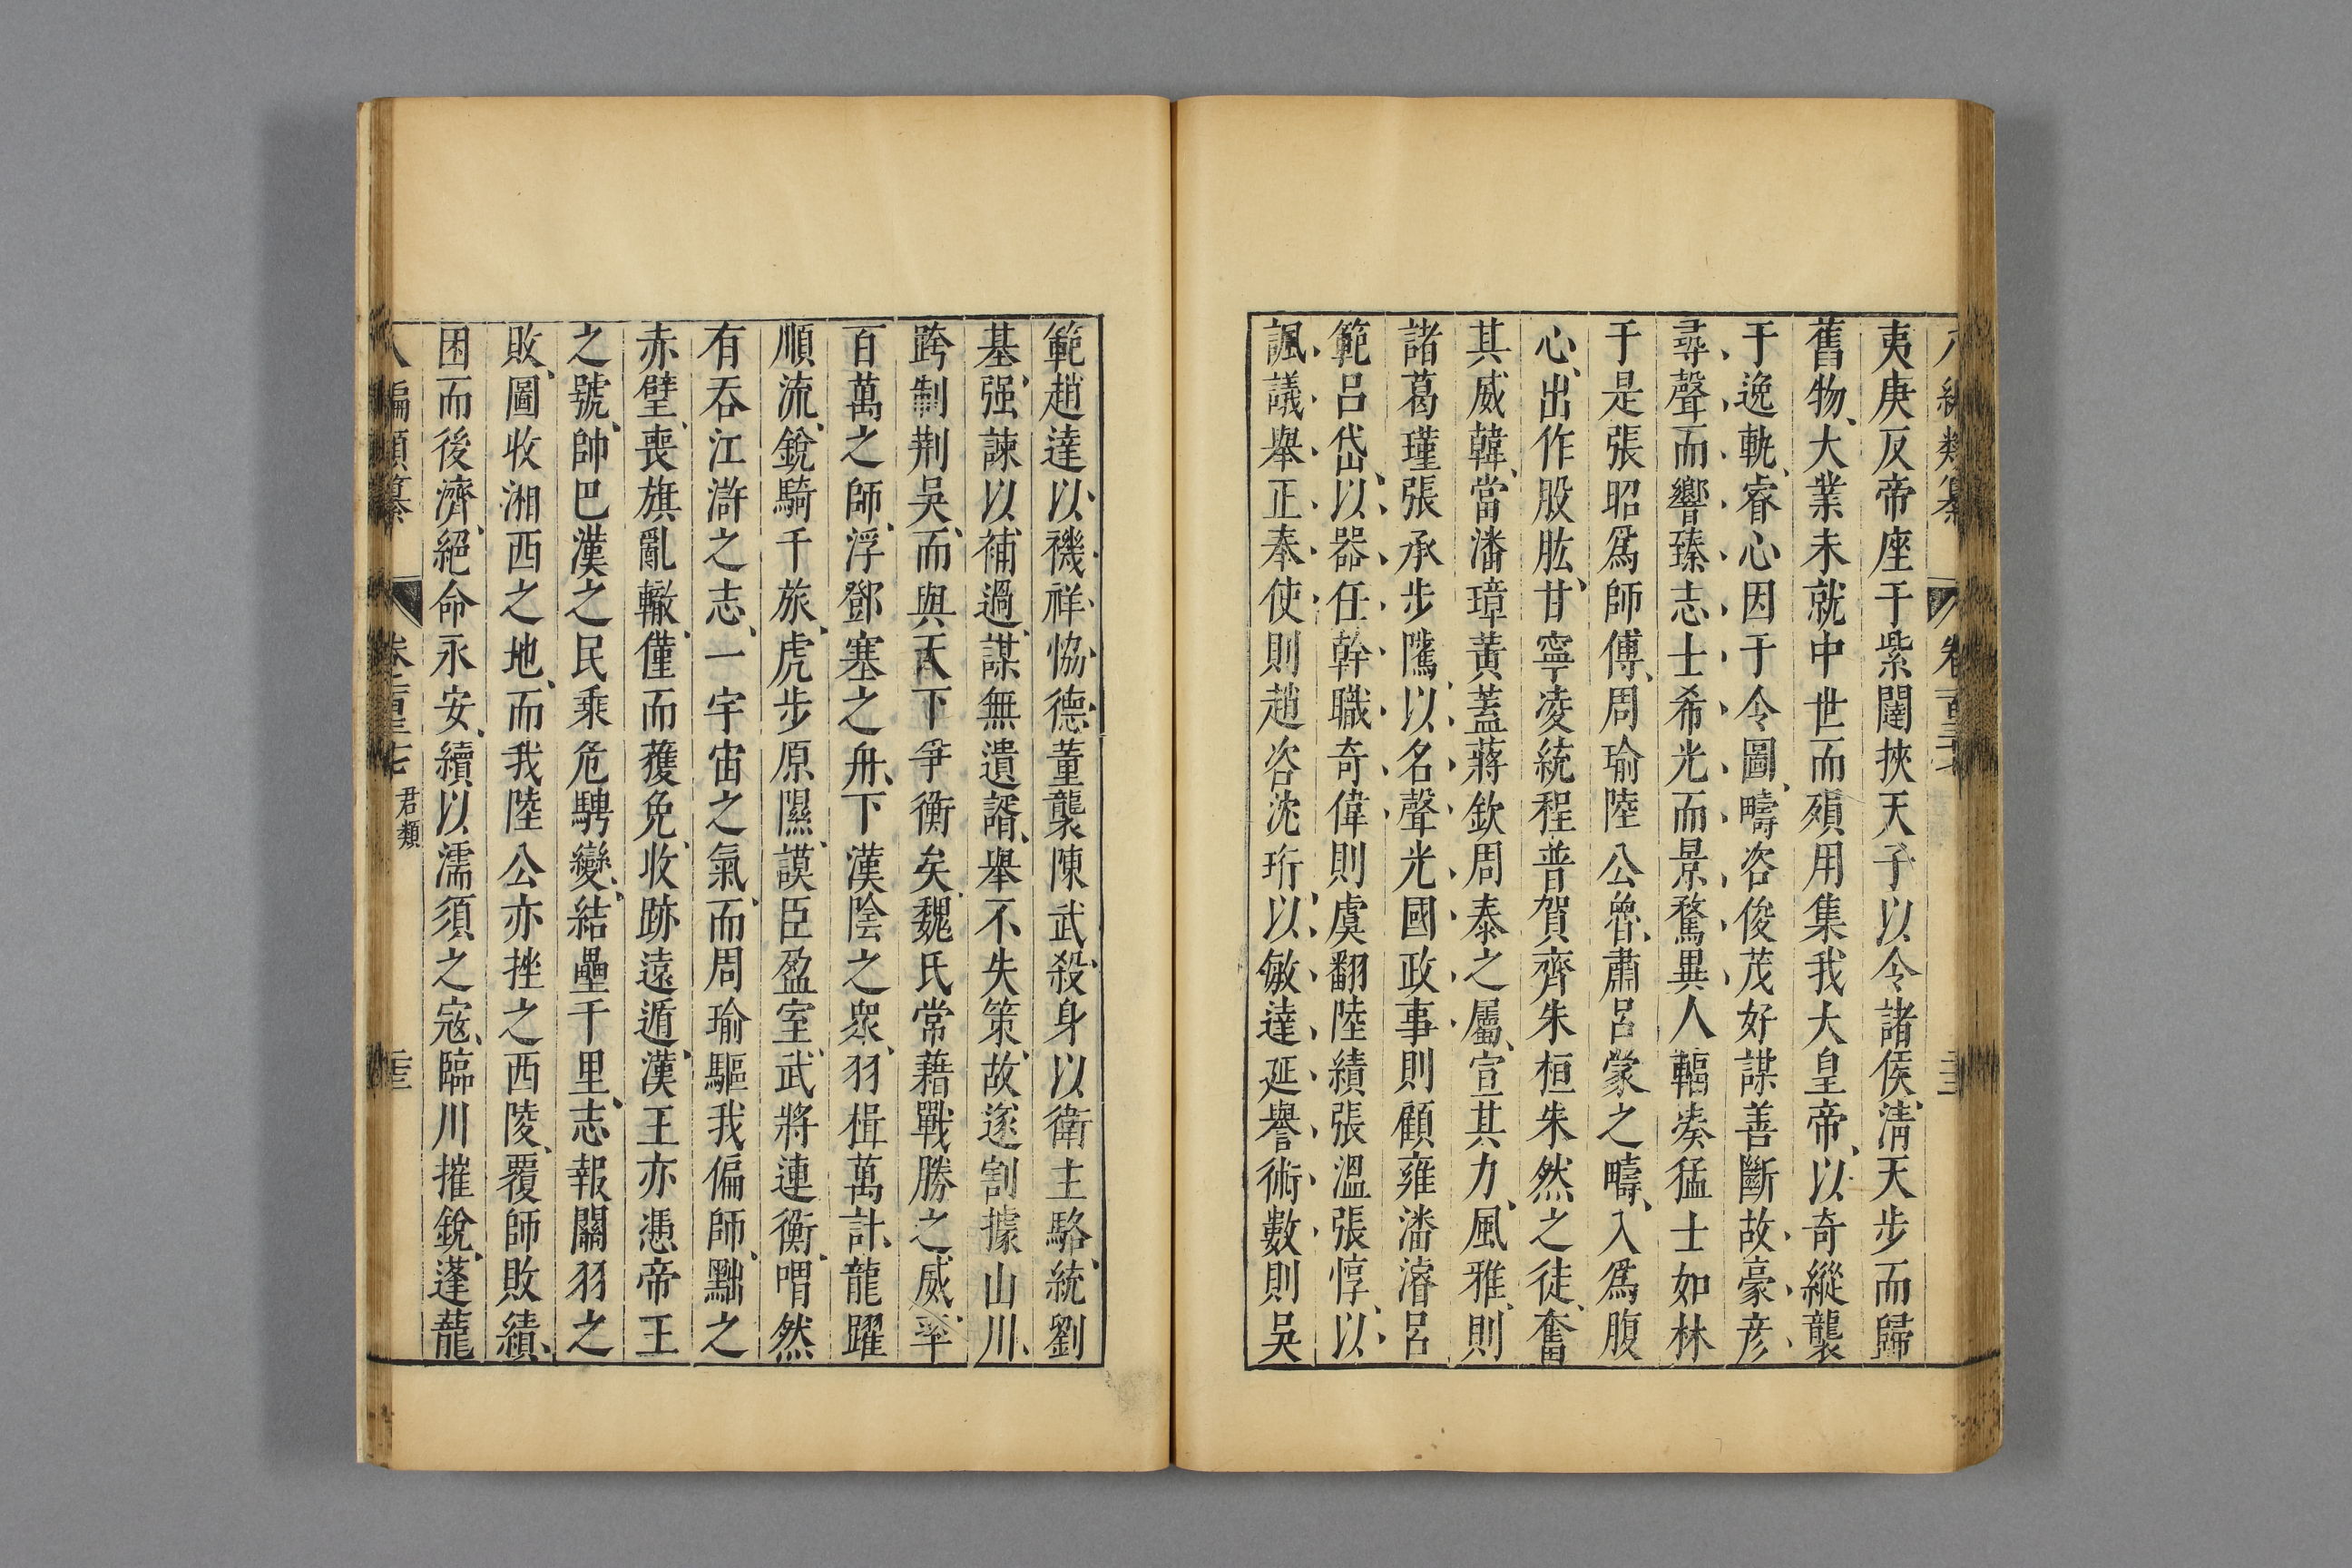 夷庚反帝座于紫闥挾天子以令諸侯清天步而歸
舊物大業未就中世而殞用集我大皇帝以奇縱襲
于逸軌睿心因于令圖疇咨俊茂好謀善斷故豪彥
尋聲而響臻志士希光而景騖異人輻湊猛士如林
于是張昭爲師傅周瑜陸公魯肅呂蒙之疇入爲腹
心出作股肱甘寧凌統程普賀齊朱桓朱然之徒奮
其威韓當潘璋黃蓋蔣欽周泰之屬宣其力風雅則
諸葛瑾張承步隲以名聲光國政事則顧雍潘濬呂
範呂岱以器任幹職奇偉則虞翻陸績張溫張惇以
諷議舉正奉使則趙咨沈珩以敏達延譽術數則吳
範趙達以禨祥恊德董襲陳武殺身以衛主駱統劉
基强諫以補過謀無遺諝舉不失策故遂割據山川
跨制荆吳而與天下爭衡矣魏氏常藉戰勝之威率
百萬之師浮鄧塞之舟下漢陰之衆羽楫萬計龍躍
順流銳騎千旅虎步原隰謨臣盈室武將連衡喟然
有吞江滸之志一宇宙之氣而周瑜驅我偏師黜之
赤壁喪旗亂轍僅而獲免收跡遠遁漢王亦憑帝王
之號帥巴漢之民乘危騁變結壘千里志報關羽之
敗圖收湘西之地而我陸公亦挫之西陵覆師敗績
困而後濟絕命永安續以濡須之寇臨川摧銳蓬蘢
八編類纂 卷 君類